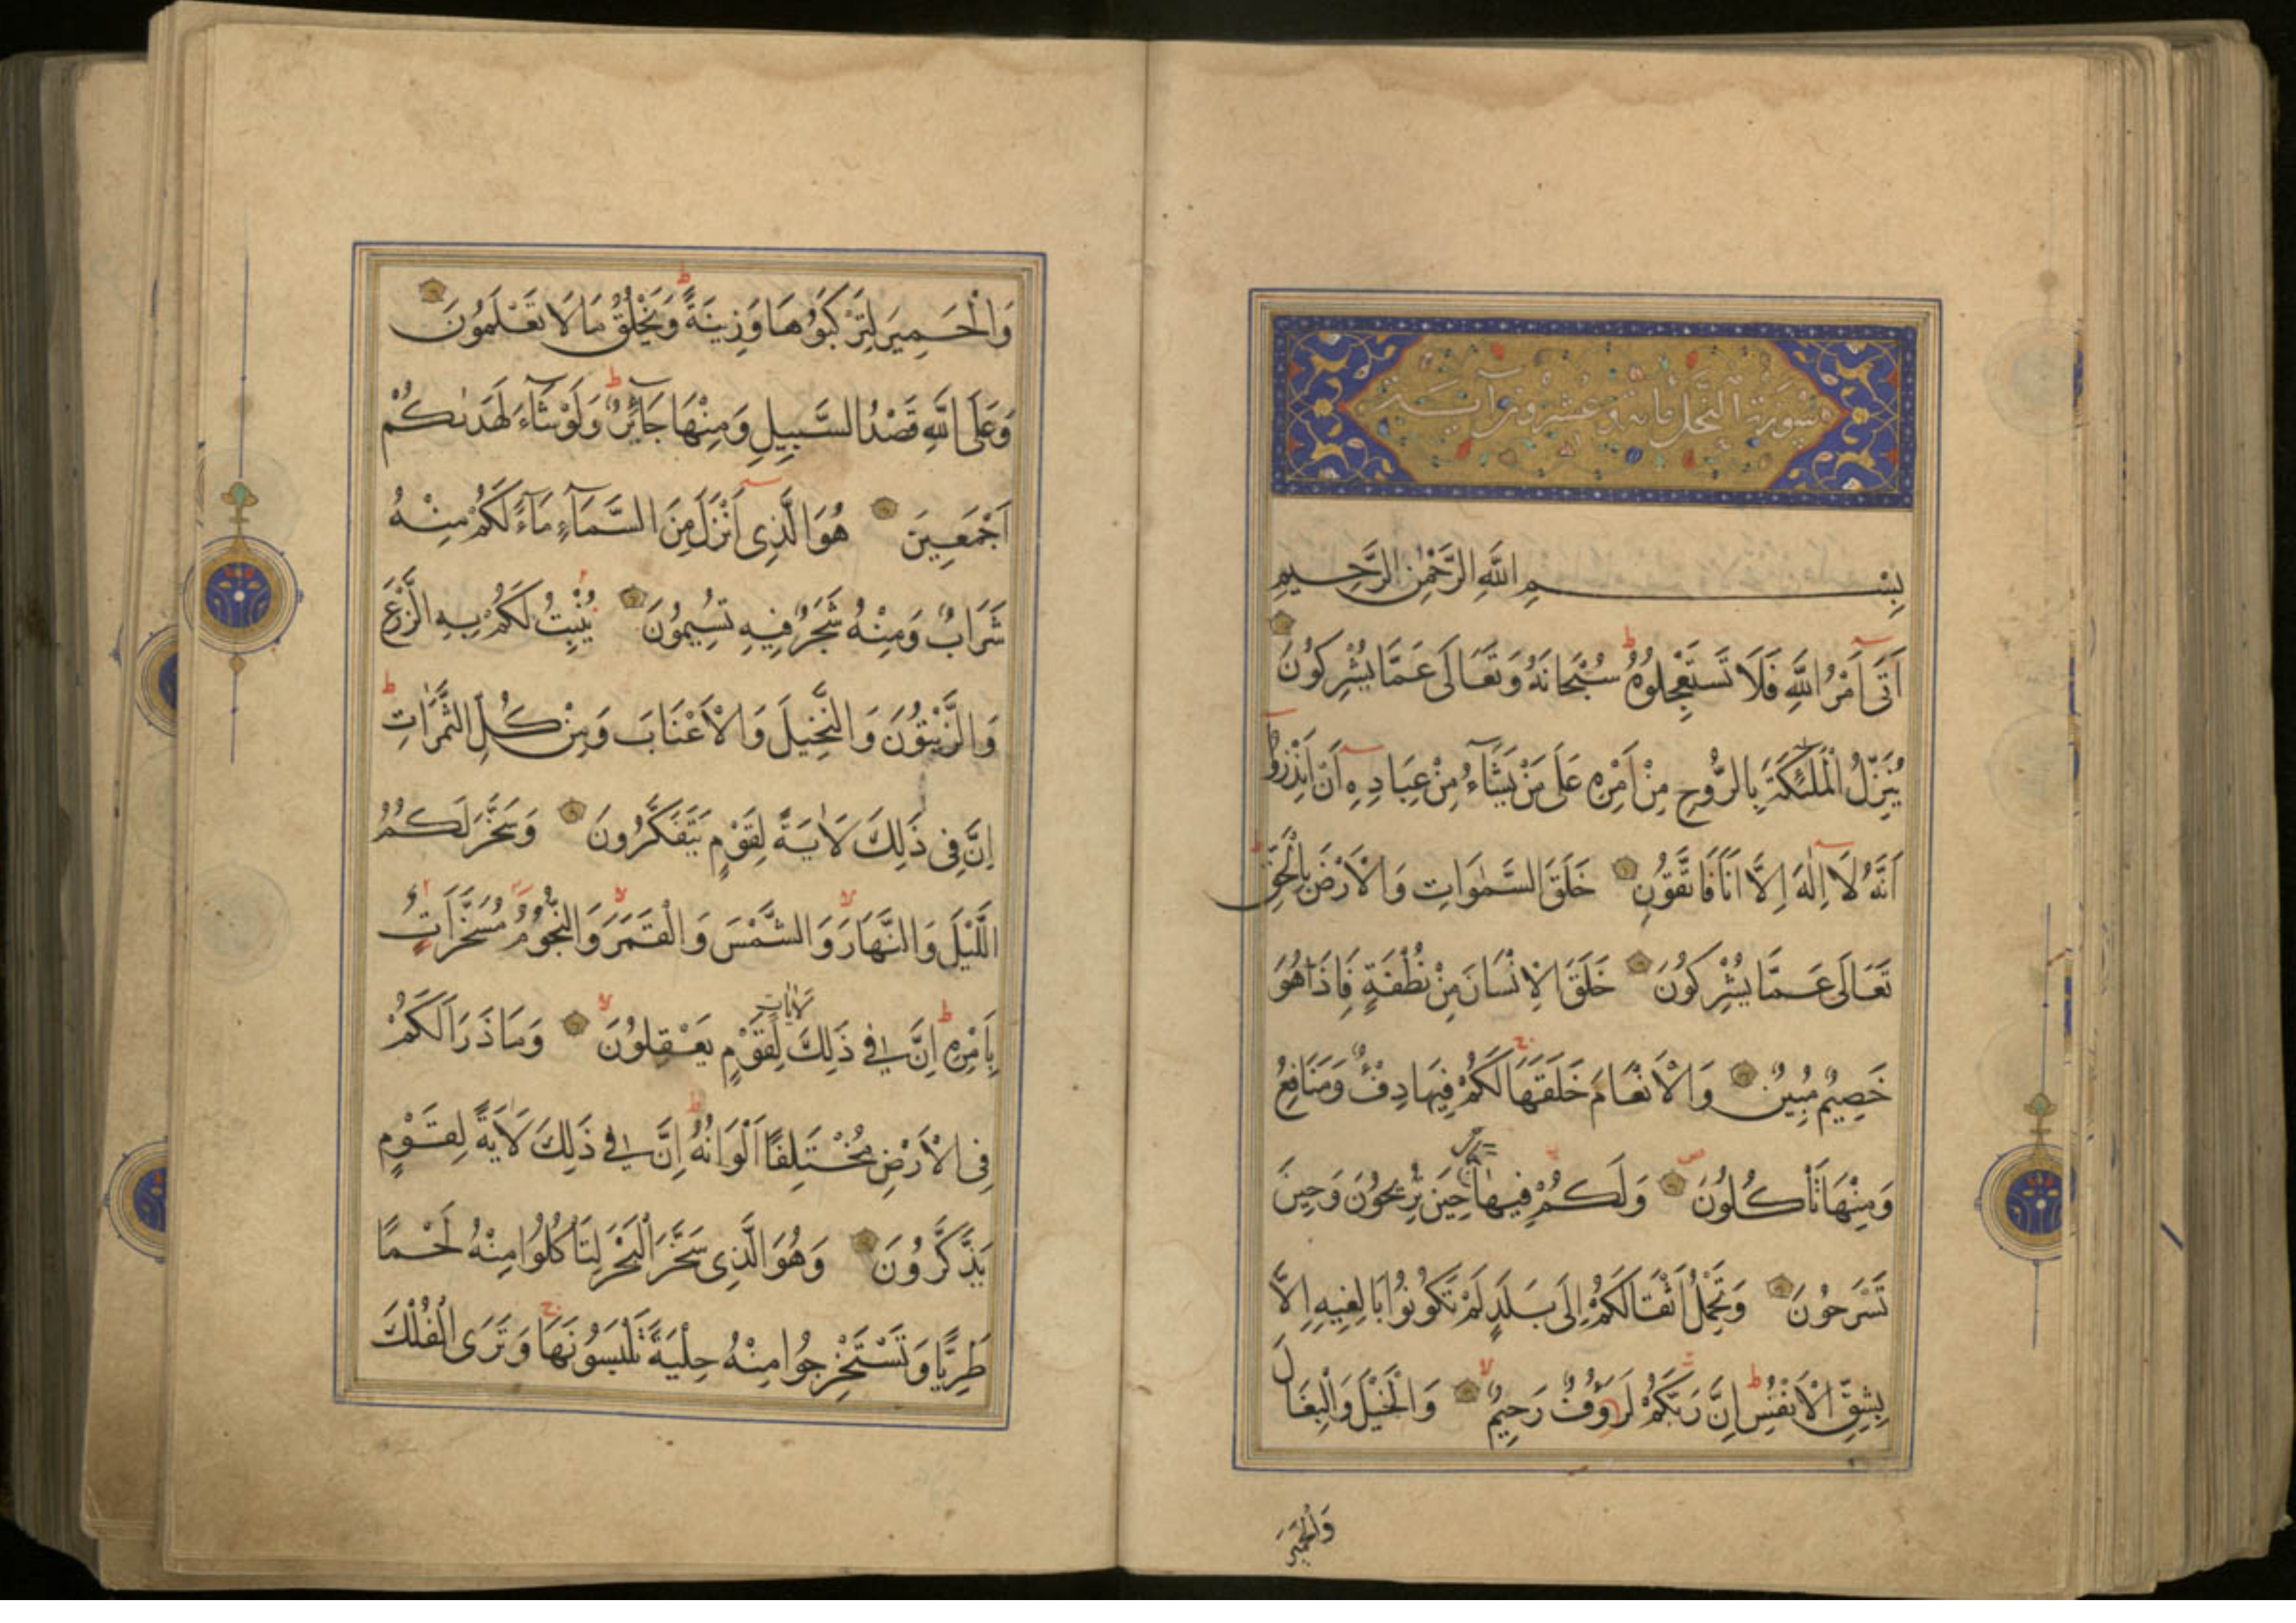 سورة النحل مائة وعشرون آية
بِسْمِ اللَّهِ الرَّحْمٰنِ الرَّحِيمِ
اَتَى اَمْرُ اللَّهِ فَلَا تَسْتَعْجِلُوهُ سُبْحَانَهُ وَتَعَالَى عَمَّا يُشْرِكُونَ
يُنَزِّلُ الْمَلٰئِكَةَ بِالرُّوحِ مِنْ اَمْرِهِ عَلَى مَنْ يَشَآءُ مِنْ عِبَادِهِ اَنْ اَنْذِرُوا
اَنَّهُ لَا اِلٰهَ اِلَّا اَنَا فَاتَّقُونِ خَلَقَ السَّمٰوَاتِ وَالْاَرْضَ بِالْحَقِّ
تَعَالَى عَمَّا يُشْرِكُونَ خَلَقَ الْاِنْسَانَ مِنْ نُطْفَةٍ فَاِذَا هُوَ
خَصِيمٌ مُبِينٌ وَالْاَنْعَامَ خَلَقَهَا لَكُمْ فِيهَا دِفْءٌ وَمَنَافِعُ
وَمِنْهَا تَأْكُلُونَ وَلَكُمْ فِيهَا جَمَالٌ حِينَ تُرِيحُونَ وَحِينَ
تَسْرَحُونَ وَتَحْمِلُ اَثْقَالَكُمْ اِلَى بَلَدٍ لَمْ تَكُونُوا بَالِغِيهِ اِلَّا
بِشِقِّ الْاَنْفُسِ اِنَّ رَبَّكُمْ لَرَؤُفٌ رَحِيمٌ وَالْخَيْلَ وَالْبِغَالَ
وَالْحَمِيرَ
وَالْحَمِيرَ لِتَرْكَبُوهَا وَزِينَةً وَيَخْلُقُ مَا لَا تَعْلَمُونَ
وَعَلَى اللَّهِ قَصْدُ السَّبِيلِ وَمِنْهَا جَآئِرٌ وَلَوْ شَآءَ لَهَدٰىكُمْ
اَجْمَعِينَ هُوَ الَّذِى اَنْزَلَ مِنَ السَّمَآءِ مَآءً لَكُمْ مِنْهُ
شَرَابٌ وَمِنْهُ شَجَرٌ فِيهِ تُسِيمُونَ يُنْبِتُ لَكُمْ بِهِ الزَّرْعَ
وَالزَّيْتُونَ وَالنَّخِيلَ وَالْاَعْنَابَ وَمِنْ كُلِّ الثَّمَرَاتِ
اِنَّ فِى ذَلِكَ لَاٰيَةً لِقَوْمٍ يَتَفَكَّرُونَ وَسَخَّرَ لَكُمُ
اللَّيْلَ وَالنَّهَارَ وَالشَّمْسَ وَالْقَمَرَ وَالنُّجُومُ مُسَخَّرَاتٌ
بِاَمْرِهِ اِنَّ فِى ذَلِكَ لَاٰيَاتٍ لِقَوْمٍ يَعْقِلُونَ وَمَا ذَرَاَ لَكُمْ
فِى الْاَرْضِ مُخْتَلِفًا اَلْوَانُهُ اِنَّ فِى ذَلِكَ لَاٰيَةً لِقَوْمٍ
يَذَّكَّرُونَ وَهُوَ الَّذِى سَخَّرَ الْبَحْرَ لِتَأْكُلُوا مِنْهُ لَحْمًا
طَرِيًّا وَتَسْتَخْرِجُوا مِنْهُ حِلْيَةً تَلْبَسُونَهَا وَتَرَى الْفُلْكَ